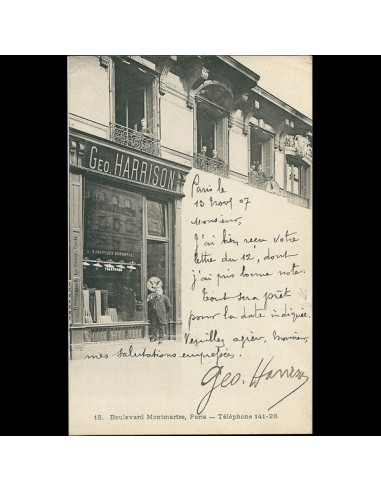 GEO. HARRISON
Paris le
13 Nov 07
Monsieur,
J'ai bien reçu votre
lettre du 12, dont
j'ai pris bonne note.
Tout sera prêt
pour la date indiquée.
Veuillez agréer, Monsieur,
mes salutations empressées.
Geo. Harrison
18. Boulevard Montmartre, Paris — Téléphone 141-26